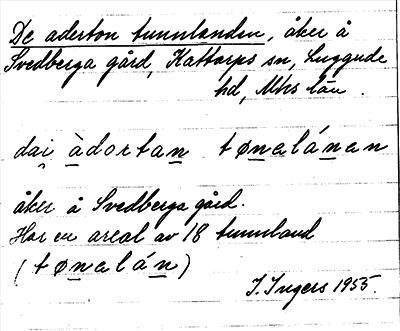 De aderton tunnlanden, åker å
Svedberga gård, Kattarps sn, Luggude
hd, Mhs län.
dai̯ àdortan tønalánan
åker å Svedberga gård.
Har en areal av 18 tunnland
(tønalán)
I. Ingers 1955.